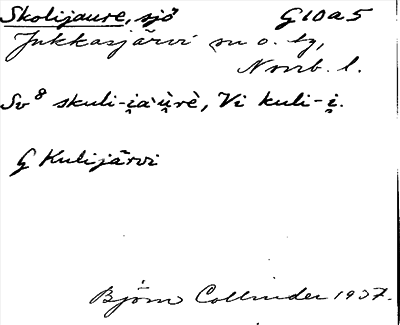 Skolijaure, sjö G10a5
Jukkasjärvi sn o. tg,
Norrb. l.
Sv⁸ skuli-i̯a'ùrè, Vi kuli-i̯.
G Kulijärvi
Björn Collinder 1937.